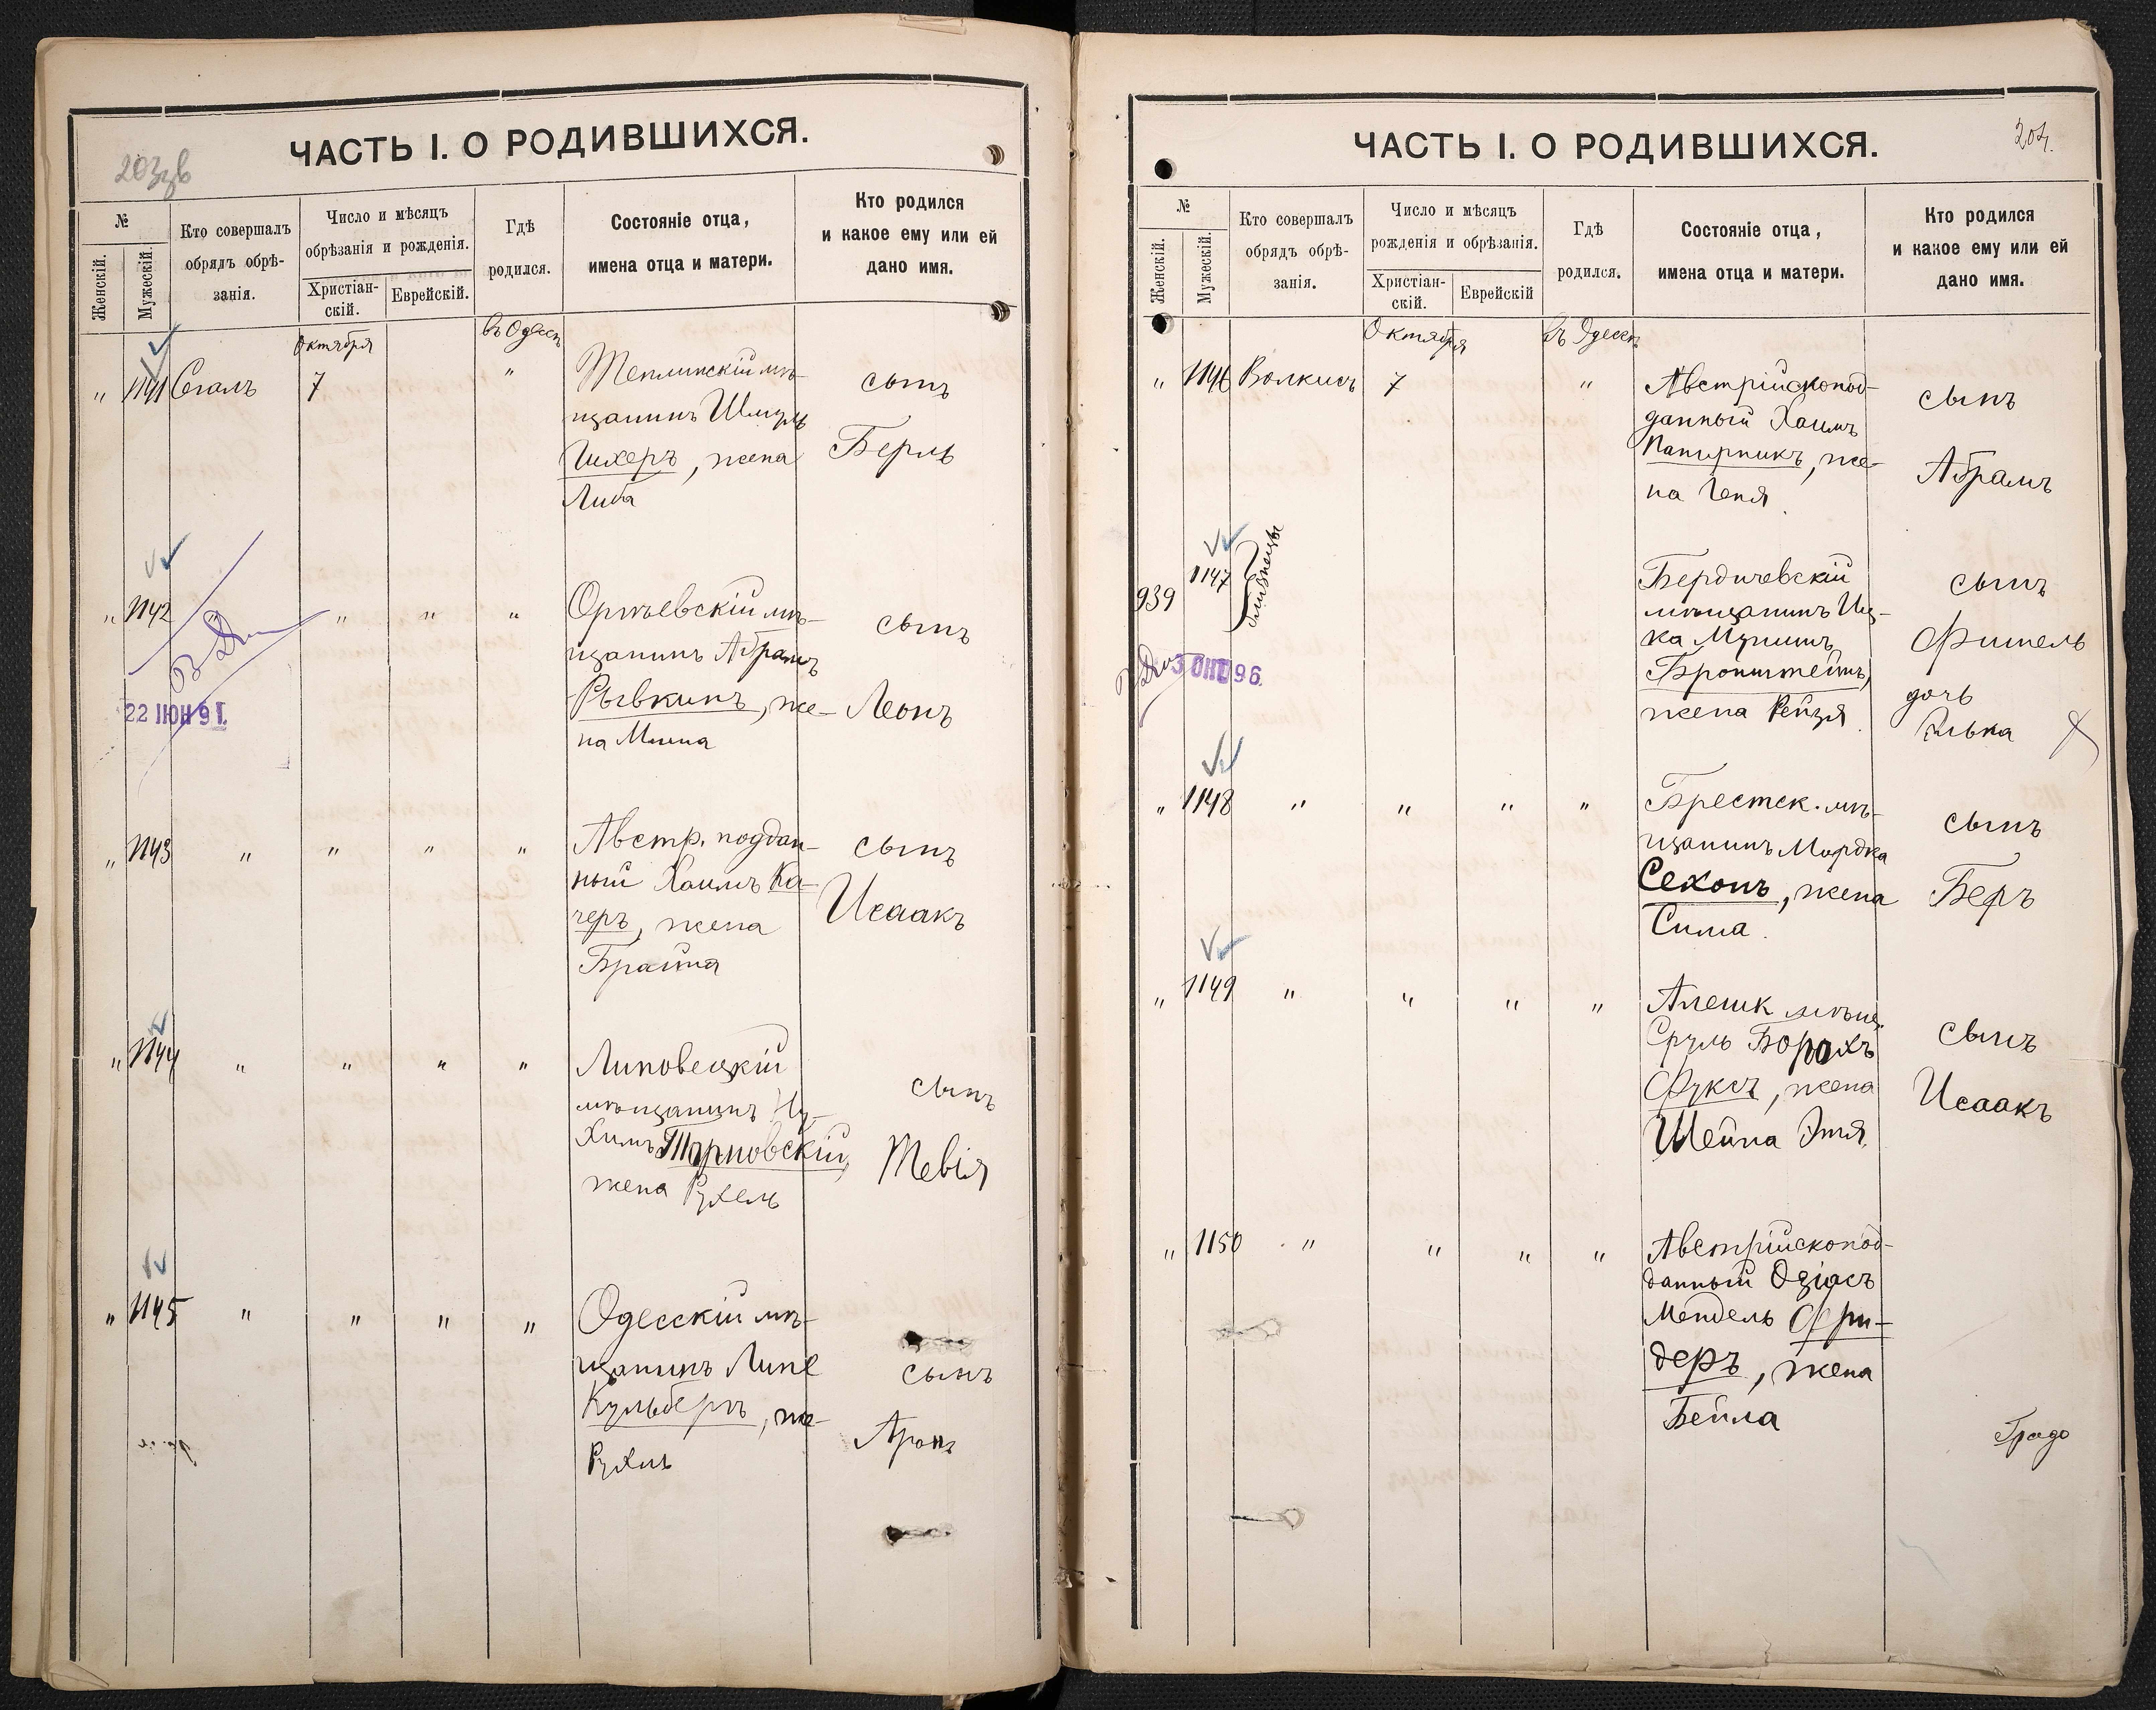 203 об
ЧАСТЬ I. О РОДИВШИХСЯ.
№
Женскій.
Мужескій.
Кто совершалъ
обрядъ обрѣ-
занія.
Число и мѣсяцъ
обрѣзанія и рожденія.
Христіан-
скій.
Еврейскій.
Гдѣ
родился.
Состояніе отца,
имена отца и матери.
Кто родился
и какое ему или ей
дано имя.
Октября
въ Одессѣ
" 1141 Сегалъ 7 "
Теплинскій мѣ-
щанинъ Шмуль
Шехеръ, жена
Либа
сынъ
Берль
" 1142 " " " "
Оргѣевскій мѣ-
щанинъ Абрамъ
Рывкинъ, же-
на Миня
сынъ
Леонъ
22 ІЮН 91.
" 1143 " " " "
Австр. поддан-
ный Хаимъ Ка-
черъ, жена
Брайна
сынъ
Исаакъ
" 1144 " " " "
Липовецкій
мѣщанинъ Ну-
химъ Тарновскій,
жена Рухель
сынъ
Тевія
" 1145 " " " "
Одесскій мѣ-
щанинъ Липе
Кульбергъ, же-
Рухль
сынъ
Аронъ
204.
ЧАСТЬ I. О РОДИВШИХСЯ.
№
Женскій.
Мужескій.
Кто совершалъ
обрядъ обрѣ-
занія.
Число и мѣсяцъ
рожденія и обрѣзанія.
Христіан-
скій.
Еврейскій
Гдѣ
родился.
Состояніе отца,
имена отца и матери.
Кто родился
и какое ему или ей
дано имя.
Октября
въ Одессѣ
" 1146 Волкисъ 7 "
Австрійскопод-
данный Хаимъ
Папирникъ, же-
на Геня
сынъ
Абрамъ
939 1147 близнецы
Бердичевскій
мѣщанинъ Иц-
ка Мунишъ
Бронштейнъ,
жена Рейзя
сынъ
Фишель
дочь
Ривка
3 ОКТ 96.
" 1148 " " " "
Брестск. мѣ-
щанинъ Мордка
Сехонъ, жена
Сима
сынъ
Беръ
" 1149 " " " "
Алешк мѣщ.
Сруль Борохъ
Фуксъ, жена
Шейна Этя.
сынъ
Исаакъ
" 1150 " " " "
Австрійскопод-
данный Озіасъ
Мендель Фри-
деръ, жена
Бейла